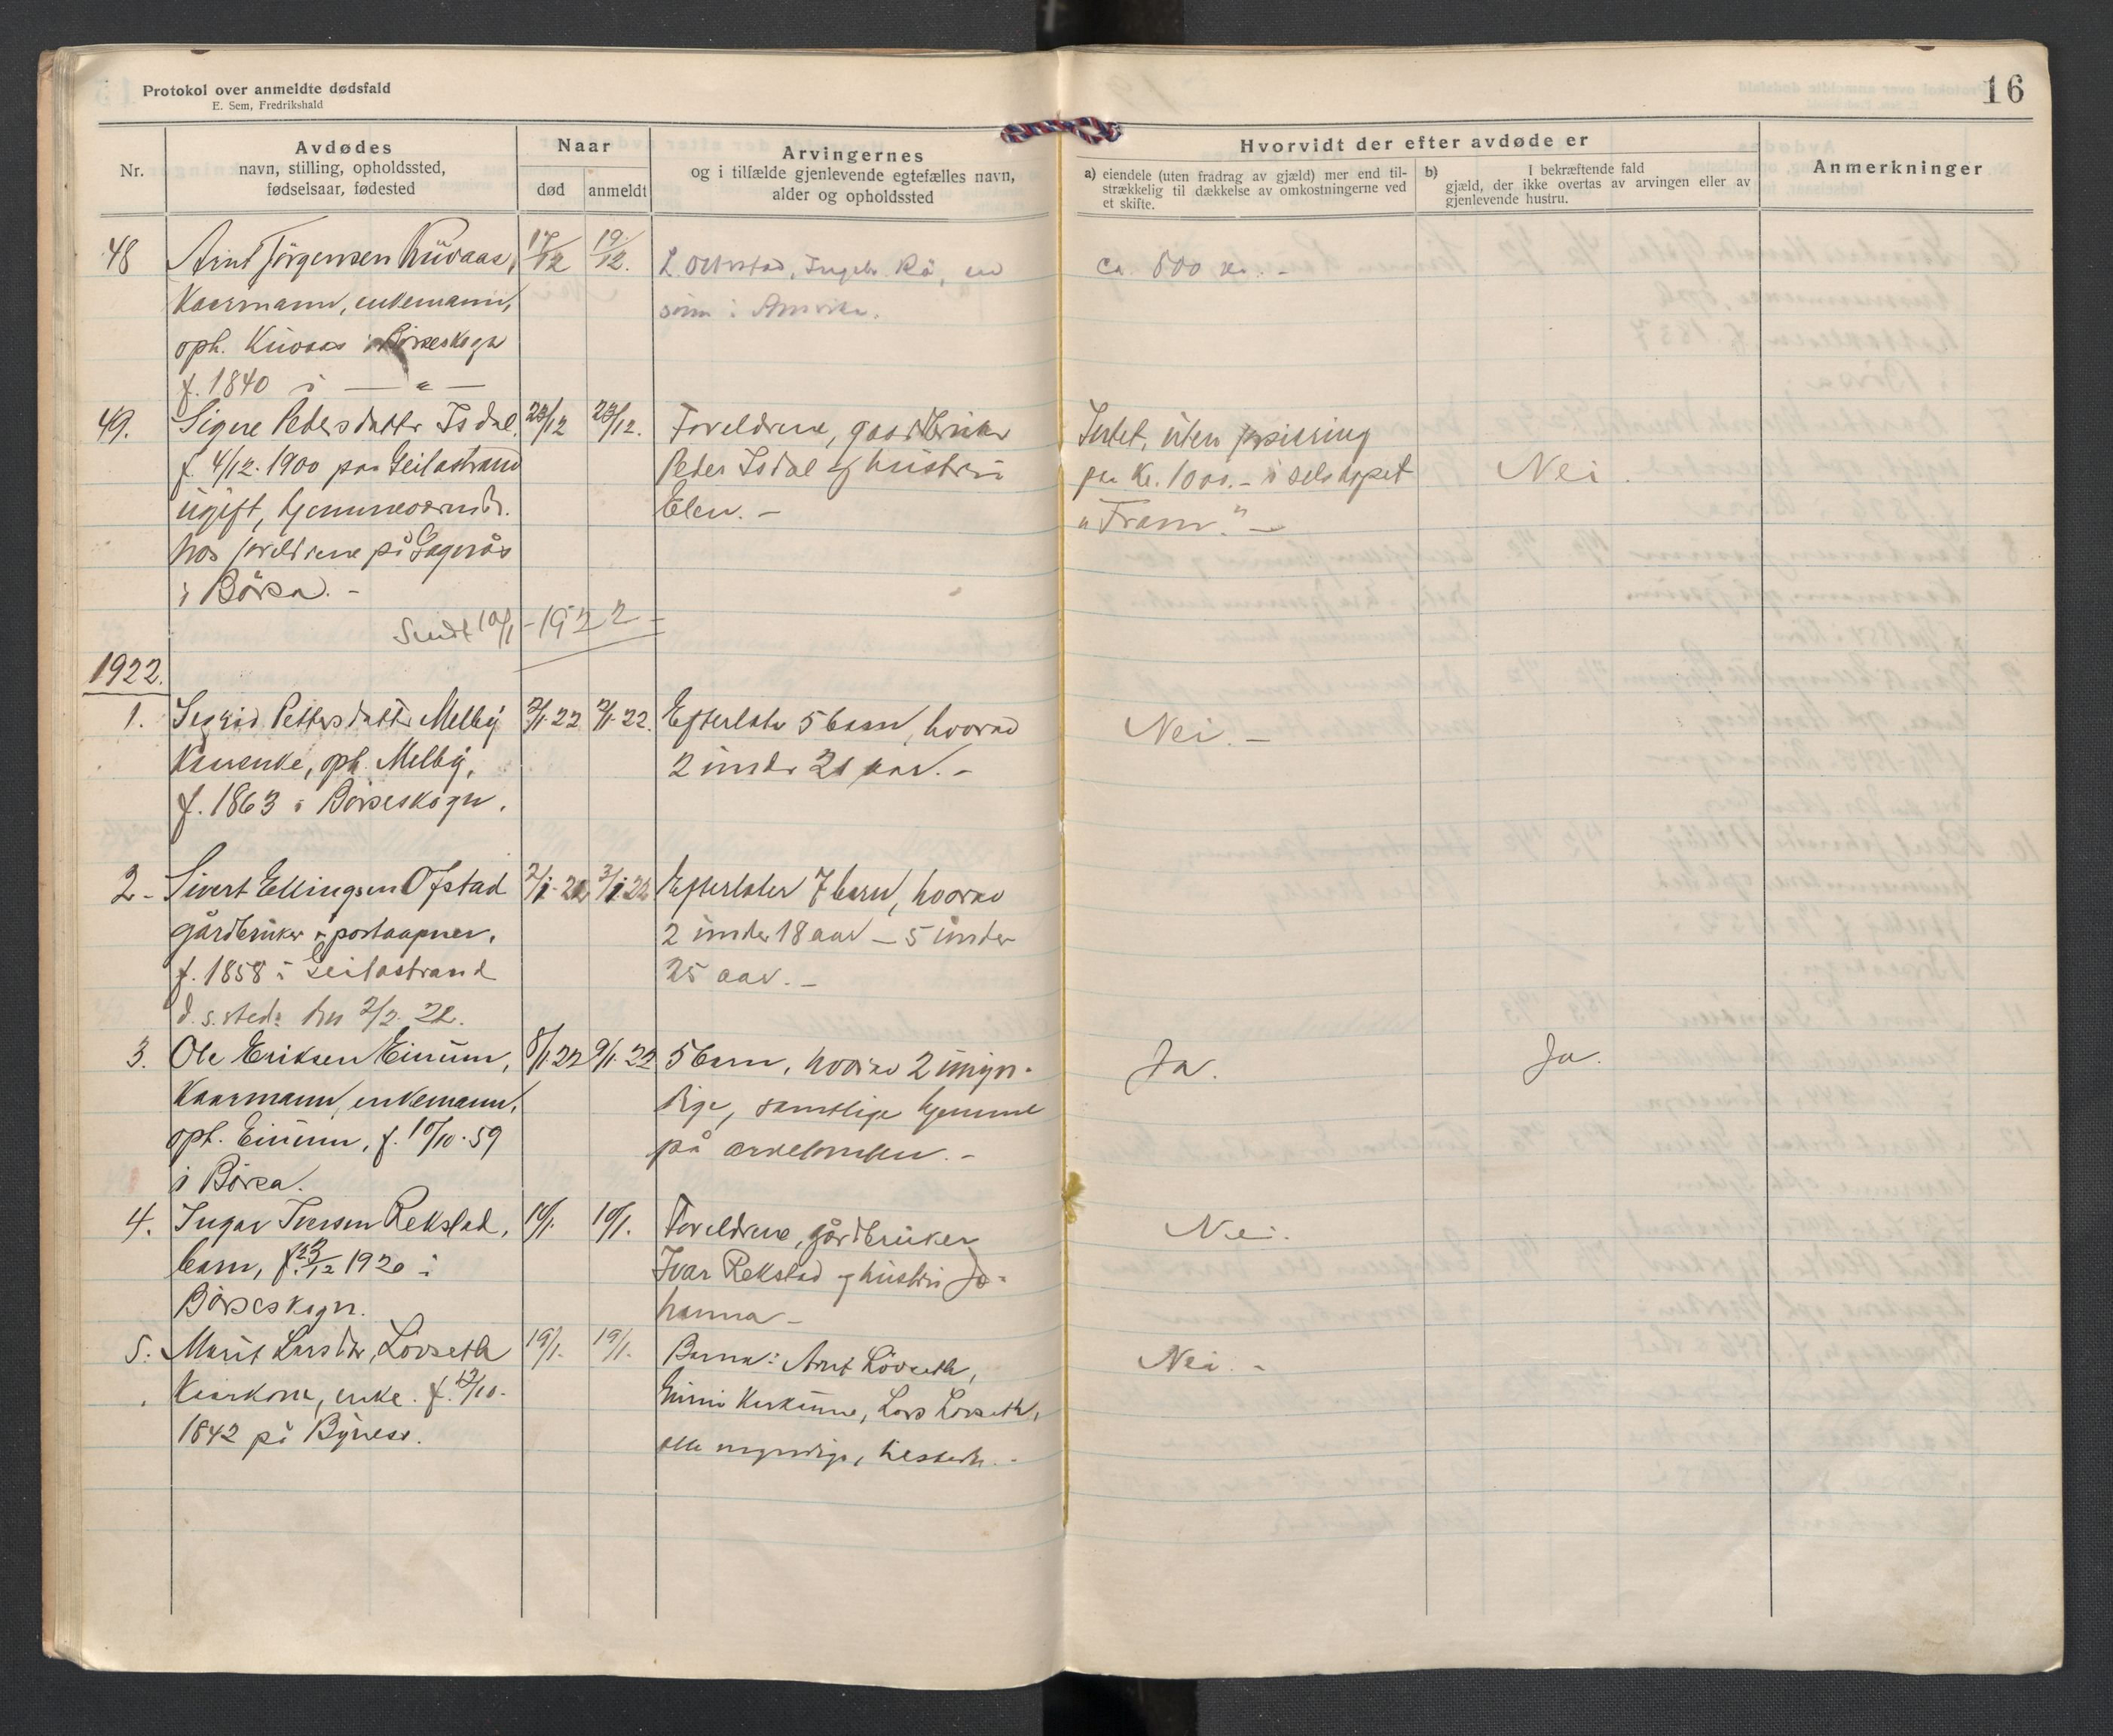 Protokol over anmeldte dødsfald
E. Sem, Fredrikshald
16
Nr.
Avdødes
navn, stilling, opholdssted,
fødselsaar, fødested
Naar
død
anmeldt
Arvingernes
og i tilfælde gjenlevende egtefælles navn,
alder og opholdssted
Hvorvidt der efter avdøde er
a) eiendele (uten fradrag av gjæld) mer end til-
strækkelig til dækkelse av omkostningerne ved
et skifte.
b) I bekræftende fald
gjæld, der ikke overtas av arvingen eller av
gjenlevende hustru.
Anmerkninger
48 Arnt Jörgensen Kuvaas, 17/12 19/12. en ca. 800 kr. -
Kaarmann, enkemann, sönn i Amerika.
oph. Kuvaas i Börseskogn
f. 1840 i — " —
49. Signe Petersdatter Isdal, 23/12. Foreldrene, gaardbruker Intet, uten
f. 4/12. 1900 paa Geilastrand Peder Isdal og hustru paa Kr. 1000.- i selskapet Nei.
ugift, hjemmeværende Elen. - "Fram." -
hos foreldrene på
i Börsa. -
Sendt 10/1 - 1922 -
1922.
1. Sigrid Pettersdatter Melby 2/1. 22. Efterlater 5 barn, hvorav Nei. -
Kaarenke, oph. Melby, 2 under 21 aar. -
f. 1863 i Börseskogn.
2 - Sivert Ellingsen Ofstad 2/1. 22 3/1. 22 Efterlater 7 barn, hvorav
gårdbruker & postaapner, 2 under 18 aar - 5 under
f. 1858 i Geilastrand 25 aar. -
d. s. sted: 2/2. 22.
3. Ole Eriksen Einum, 8/1. 22 9/1. 22 5 barn, hvorav 2 umyn- Ja. Ja.
Kaarmann, enkemann, dige, samtlige hjemme
oph. Einum, f. 10/10. 59 på
i Börsa.
4. Ingar Iversen Rekstad, 10/1. 10/1. Foreldrene, gårdbruker Nei.
barn, f. 23/12 1920 i Ivar Rekstad og hustru Jo-
Börseskogn. hanna -
5. Marit Larsdtr. Lövseth 19/1. 19/1. Barna: Arnt Lövseth, Nei. -
Kaarkone, enke. f. 13/10. Lars Lövseth,
1842 på Bynes. alle myndige,